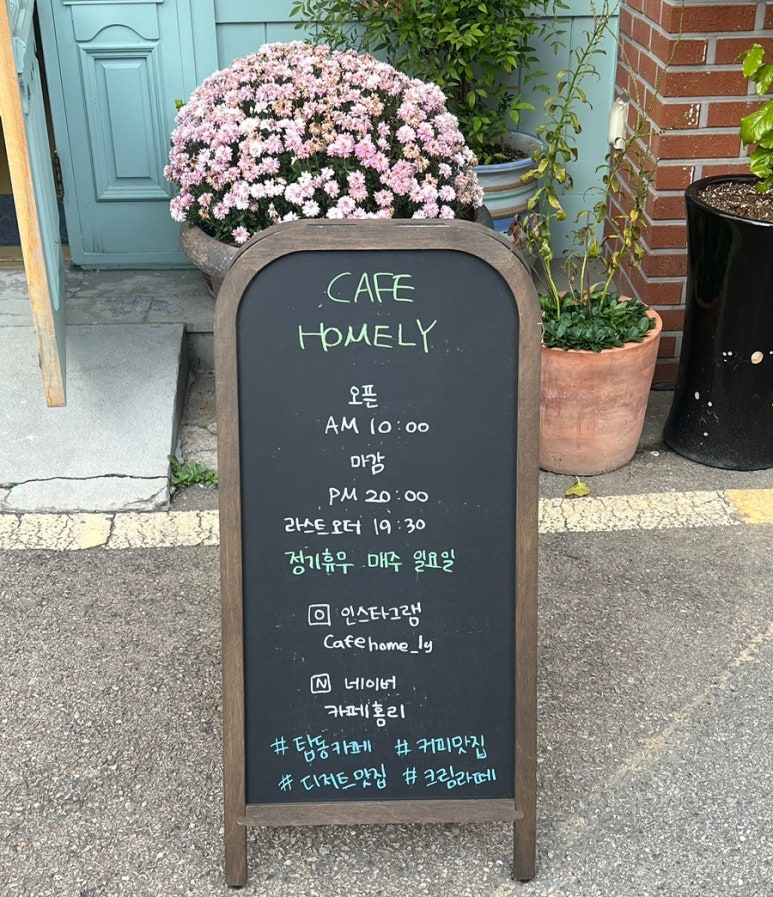 CAFE
HOMELY
오픈
AM 10:00
마감
PM 20:00
라스트오더 19:30
정기휴무 매주 일요일
인스타그램
Cafehome_ly
N 네이버
카페홈리
#탑동카페 #커피맛집
#디저트맛집 #크림라떼